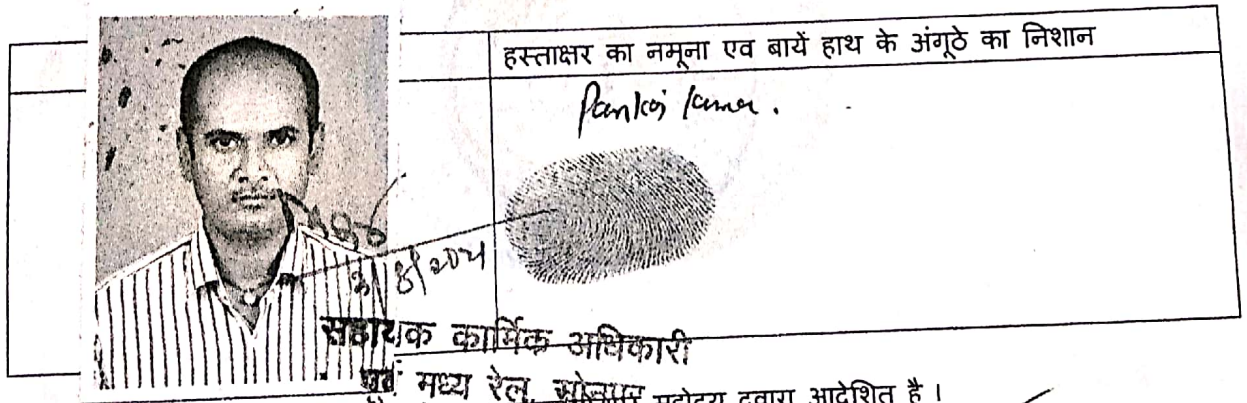 हस्ताक्षर का नमूना एव बायें हाथ के अंगूठे का निशान
Pankaj Kumar.
सहायक कार्मिक अधिकारी
पूर्व मध्य रेल, सोनपुर
महोदय द्वारा आदेशित है ।